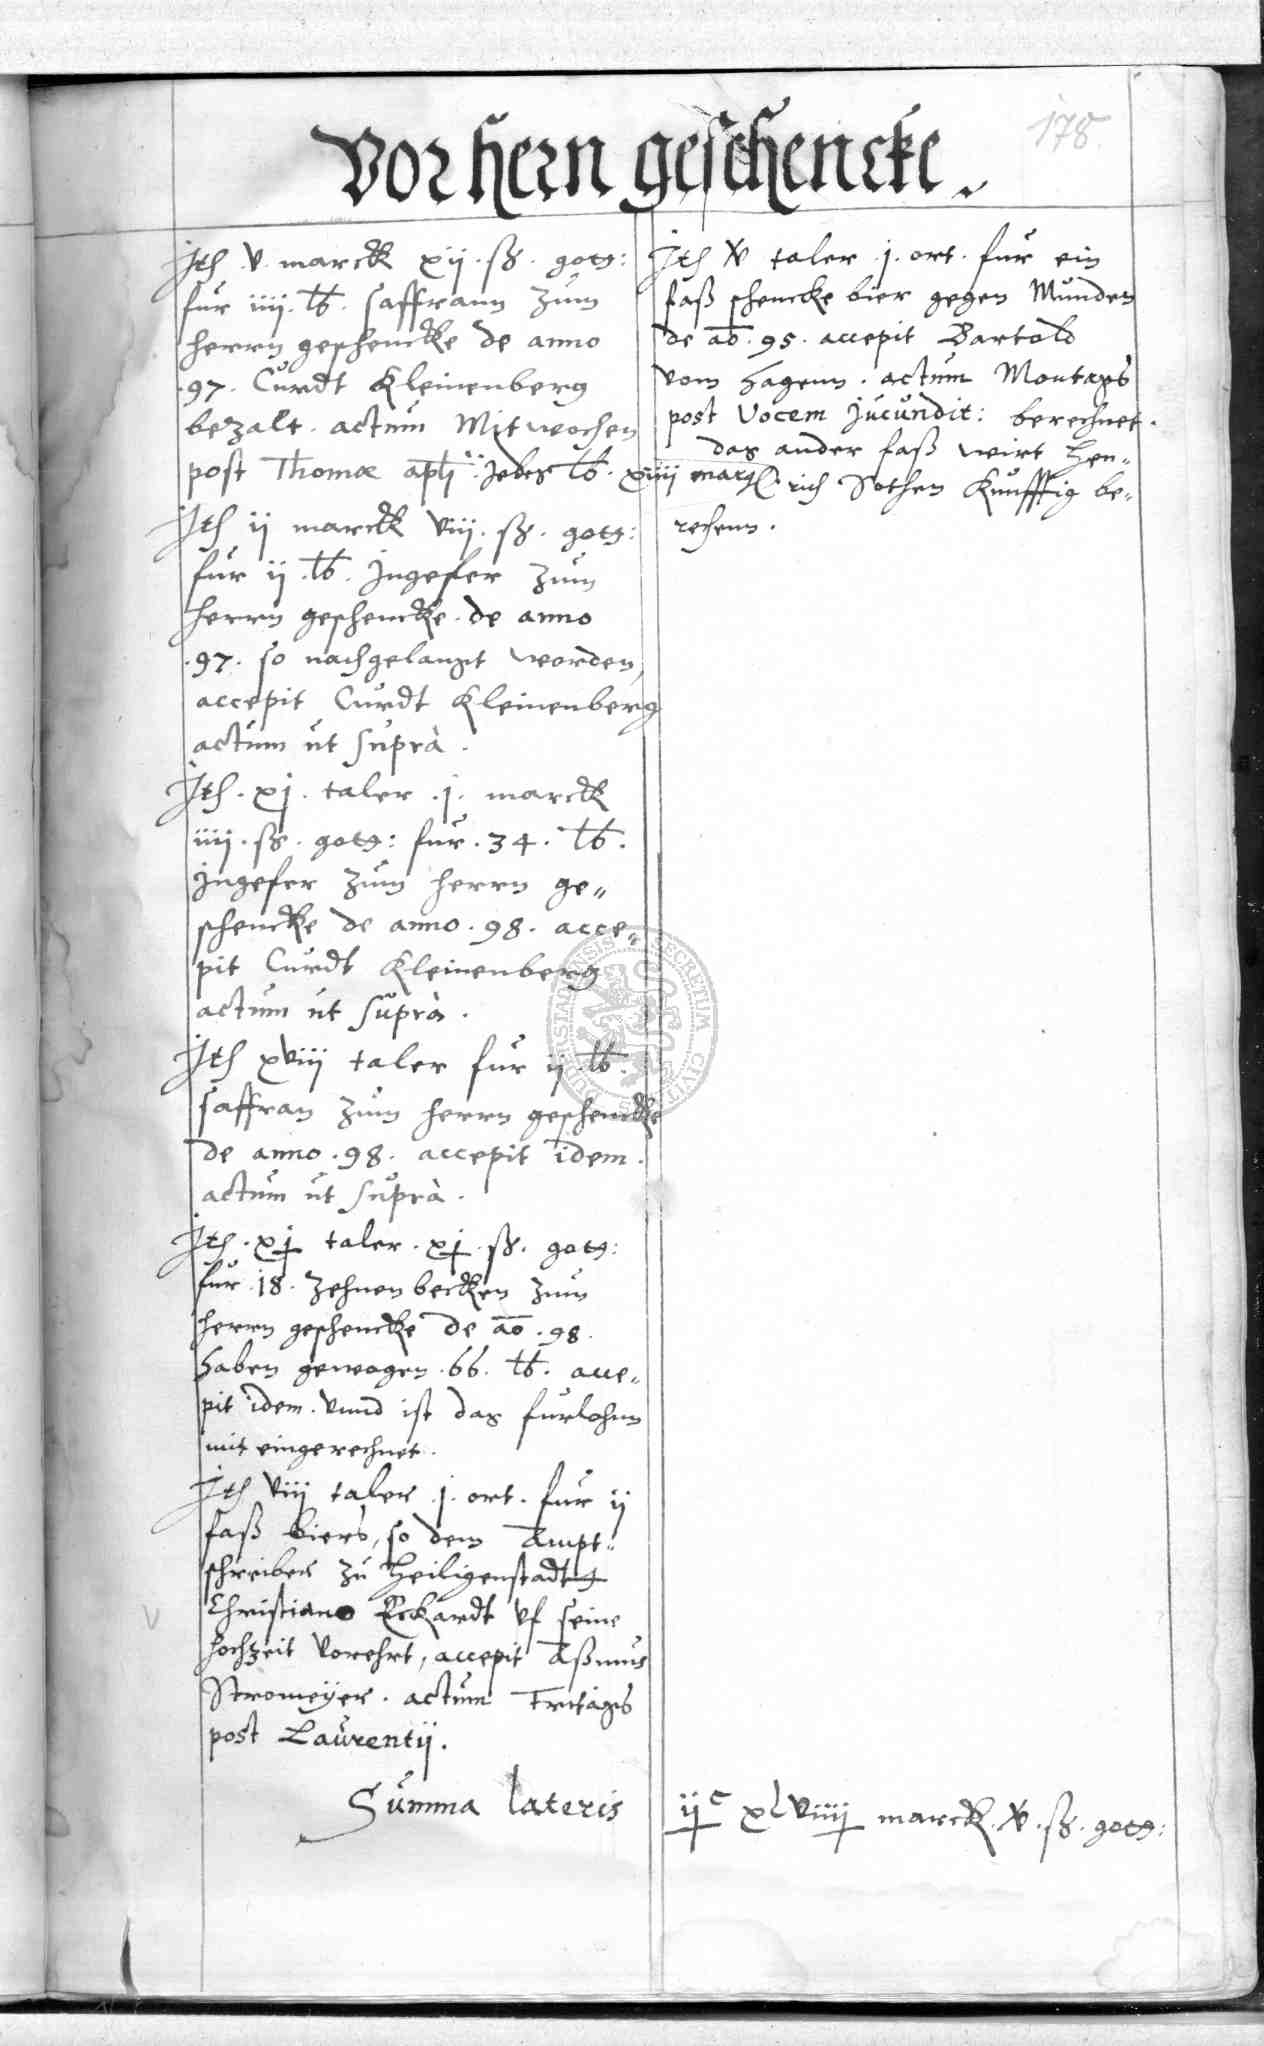 178.
Vor hern geschencke.
Ith v. marck xij. ß. gotg:
fur iiij. lb. saffrann zum
herrn geschencke de anno
.97. Curdt Kleinenberg
bezalt. actum Mitwochen
post Thomæ apli: Jedes lb. xiiij marck
Ith ij marck viij. ß. gotg:
fur ij. lb. Ingefer zum
herrn geschencke. de anno
.97. so nachgelangt worden,
accepit Curdt Kleinenberg
actum ut suprà.
Ith. xj. taler .j. marck
iiij. ß. gotg: fur .34. lb.
Ingefer zum herrn ge„
schencke de anno .98. acce„
pit Curdt Kleinenberg
actum ut suprà.
Ith xviij taler fur ij. lb.
saffran zum herrn geschencke
de anno .98. accepit idem.
actum ut suprà.
Ith. xj taler. xj. ß. gotg:
fur .18. Zehnen becken zum
herrn geschencke de ao .98.
haben gewogen .66. lb. acce„
pit idem. vnnd ist das furlohnn
mit eingerechnet.
Ith viij taler .j. ort. fur ij
faß biers, so dem Ampt„
schreiber zu Heiligenstadt
Christiano Eckardt vf seine
hochzeit vorehrt, accepit Aßmus
Stromeÿer. actum Freitags
post Laurentij.
Ith xv taler .j. ort. fur ein
faß schencke bier gegen Munden
de ao .95. accepit Bartold
vom Hagenn. actum Montags
post Vocem Jucundit: berechnet.
das ander faß wirt Hen„
rich Sothen Kunfftig be„
rechenn.
Summa lateris ij c xlviiij marck. xv. ß. gotg:
SECRETUM CIVITATIS DUDERSTADENSIS